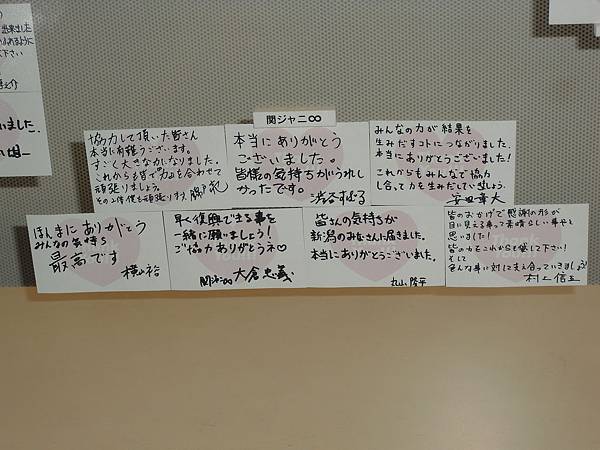 出来ました
下さい
いました。
関ジャニ∞
協力して頂いた皆さん
本当に有難うございます。
すごく大きな力になりました。
これからも皆で"力"を合わせて
頑張りましょう。
本当にありがとう
ございました。
皆様の気持ちがうれし
かったです。
渋谷すばる
みんなの力が結果を
生みだすコトにつながりました。
本当にありがとうございました!
これからもみんなで協力
し合って力を生みだしていきましょう。
安田章大
ほんまにありがとう
みんなの気持ち
最高です
横山裕
早く復興できる事を
一緒に願いましょう!
ご協力ありがとうネ♡
関ジャニ∞ 大倉忠義
皆さんの気持ちが
新潟のみなさんに届きました。
本当にありがとうございました。
丸山隆平
皆のおかげで感謝の形が
目に見える事って素晴らしい事やと
思いました!
皆の力をこれからも貸して下さい!
そして
色んな事に対して支え合っていきましょう!
村上信五